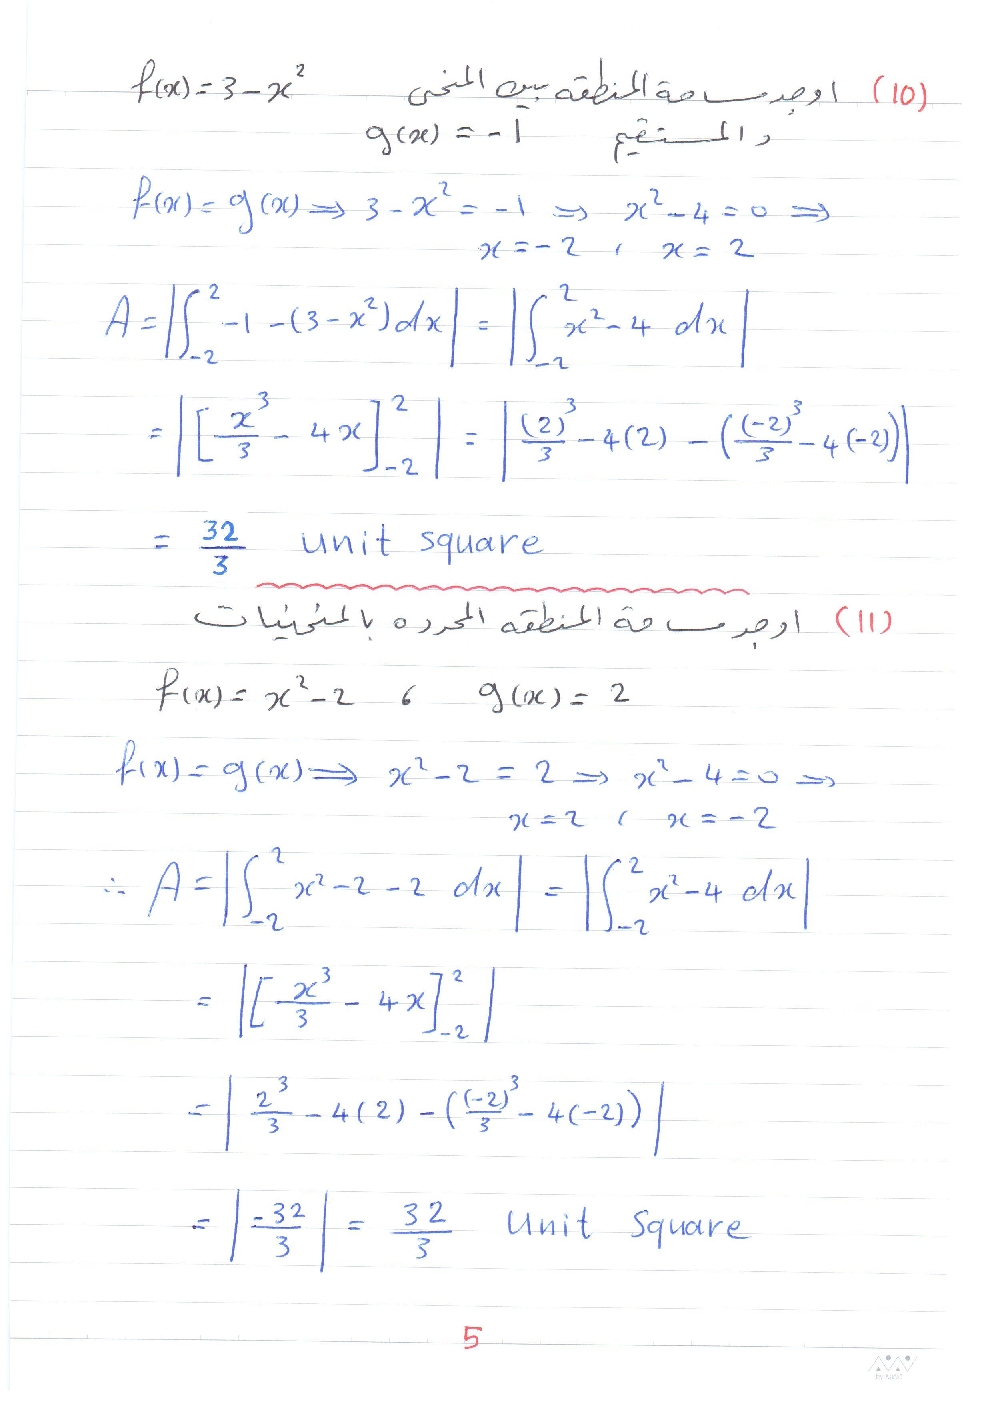 (10) اوجد مساحة المنطقه بين المنحنى f(x) = 3 - x²
والمستقيم g(x) = -1
f(x) = g(x) ⇒ 3 - x² = -1 ⇒ x² - 4 = 0 ⇒
x = -2 , x = 2
A = |∫₋₂² -1 - (3 - x²) dx| = |∫₋₂² x² - 4 dx|
= |[x³/3 - 4x]₋₂²| = |(2)³/3 - 4(2) - ((-2)³/3 - 4(-2))|
= 32/3 unit square
(11) اوجد مساحة المنطقه المحدده بالمنحنيات
f(x) = x² - 2 , g(x) = 2
f(x) = g(x) ⇒ x² - 2 = 2 ⇒ x² - 4 = 0 ⇒
x = 2 , x = -2
∴ A = |∫₋₂² x² - 2 - 2 dx| = |∫₋₂² x² - 4 dx|
= |[x³/3 - 4x]₋₂²|
= |2³/3 - 4(2) - ((-2)³/3 - 4(-2))|
= |-32/3| = 32/3 Unit Square
5